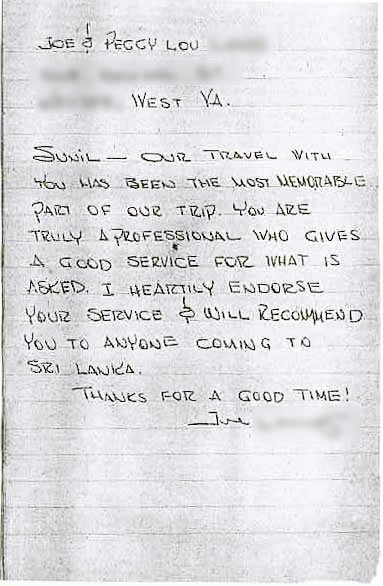 JOE & PEGGY LOU
WEST VA.
SUNIL — OUR TRAVEL WITH
YOU HAS BEEN THE MOST MEMORABLE
PART OF OUR TRIP. YOU ARE
TRULY A PROFESSIONAL WHO GIVES
A GOOD SERVICE FOR WHAT IS
ASKED. I HEARTILY ENDORSE
YOUR SERVICE & WILL RECOMMEND
YOU TO ANYONE COMING TO
SRI LANKA.
THANKS FOR A GOOD TIME!
— Joe